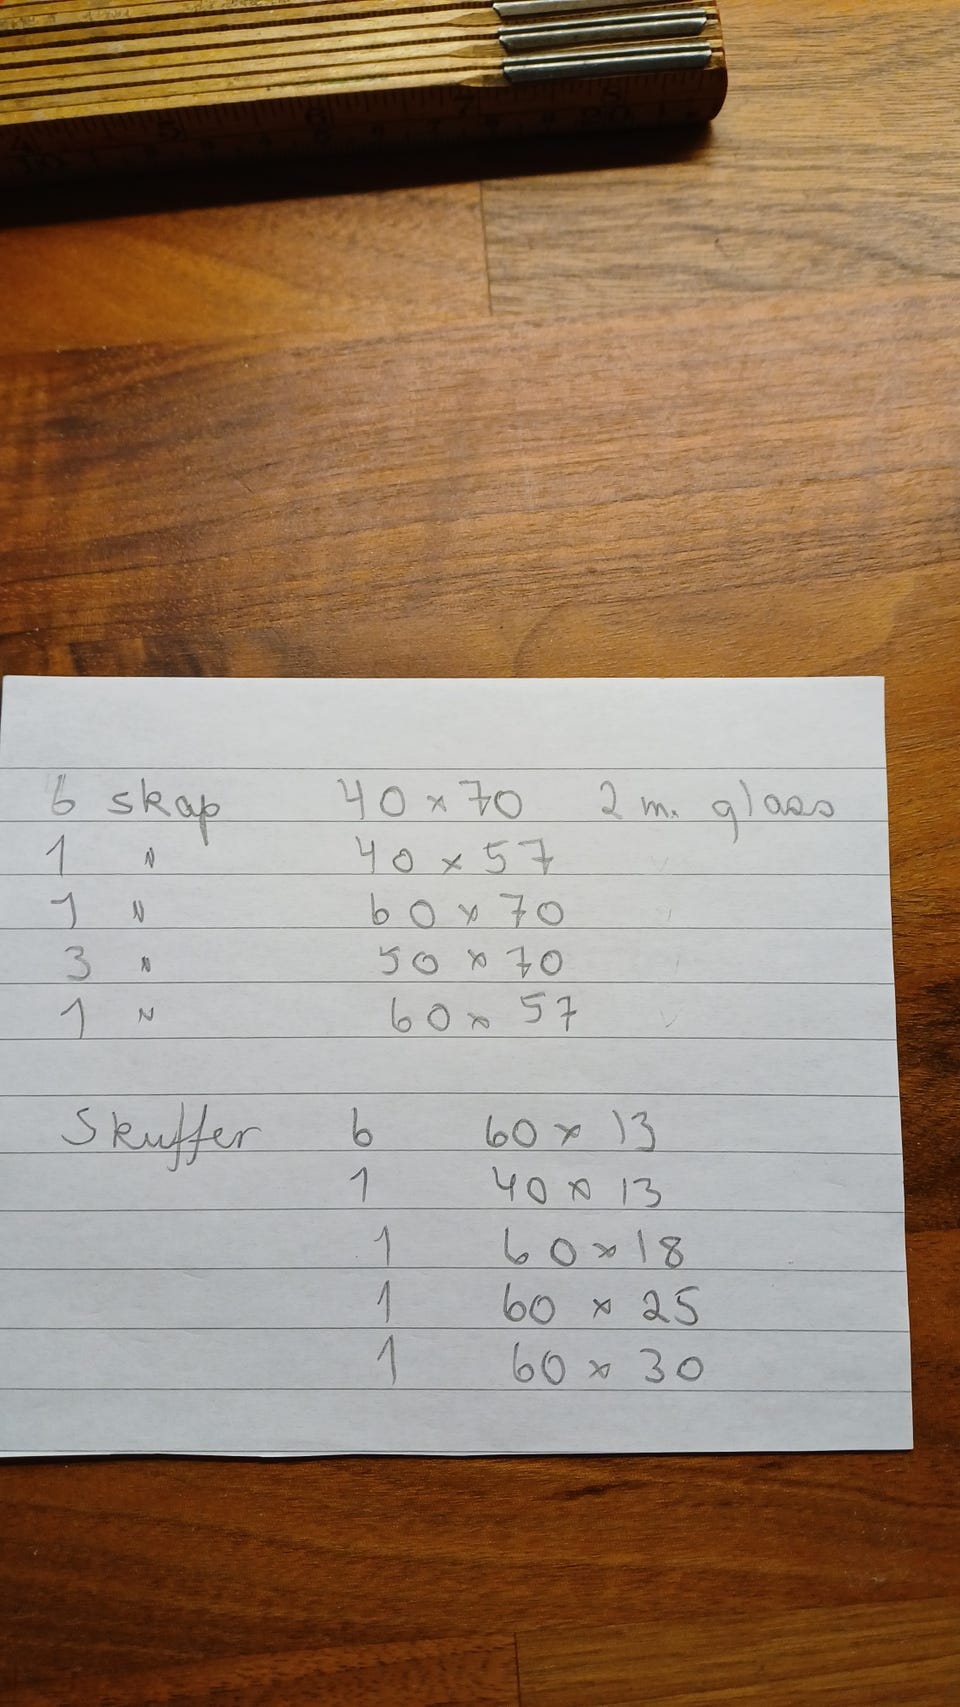 6 skap 40 x 70 2 m. glass
1 " 40 x 57
1 " 60 x 70
3 " 50 x 70
1 " 60 x 57
Skuffer 6 60 x 13
1 40 x 13
1 60 x 18
1 60 x 25
1 60 x 30